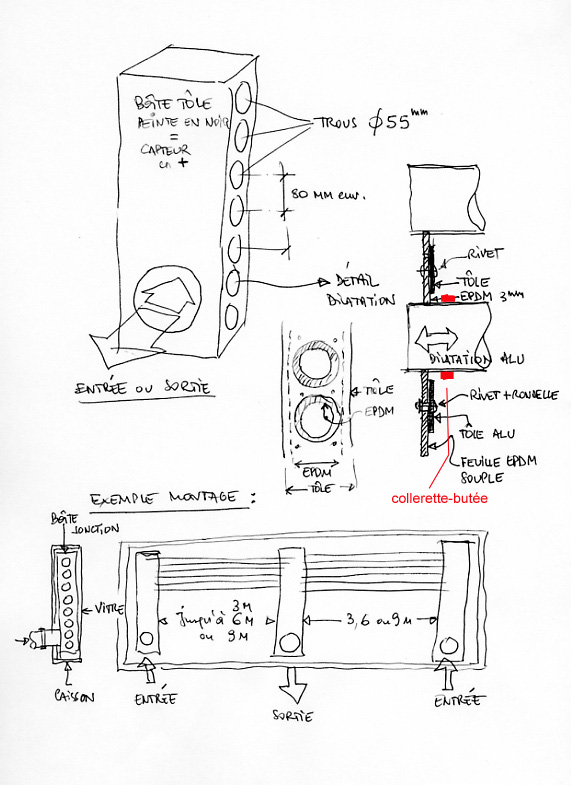 BOÎTE TÔLE
PEINTE EN NOIR
=
CAPTEUR
en +
TROUS Ø55 mm
80 MM env.
DÉTAIL
DILATATION
ENTRÉE OU SORTIE
RIVET
TÔLE
EPDM 3mm
DILATATION ALU
RIVET + RONDELLE
TÔLE ALU
FEUILLE EPDM
SOUPLE
collerette-butée
TÔLE
EPDM
EPDM
TÔLE
EXEMPLE MONTAGE :
BOÎTE
JONCTION
VITRE
CAISSON
3M
jusqu'à 6M
ou 9M
3, 6 ou 9M
ENTRÉE
SORTIE
ENTRÉE